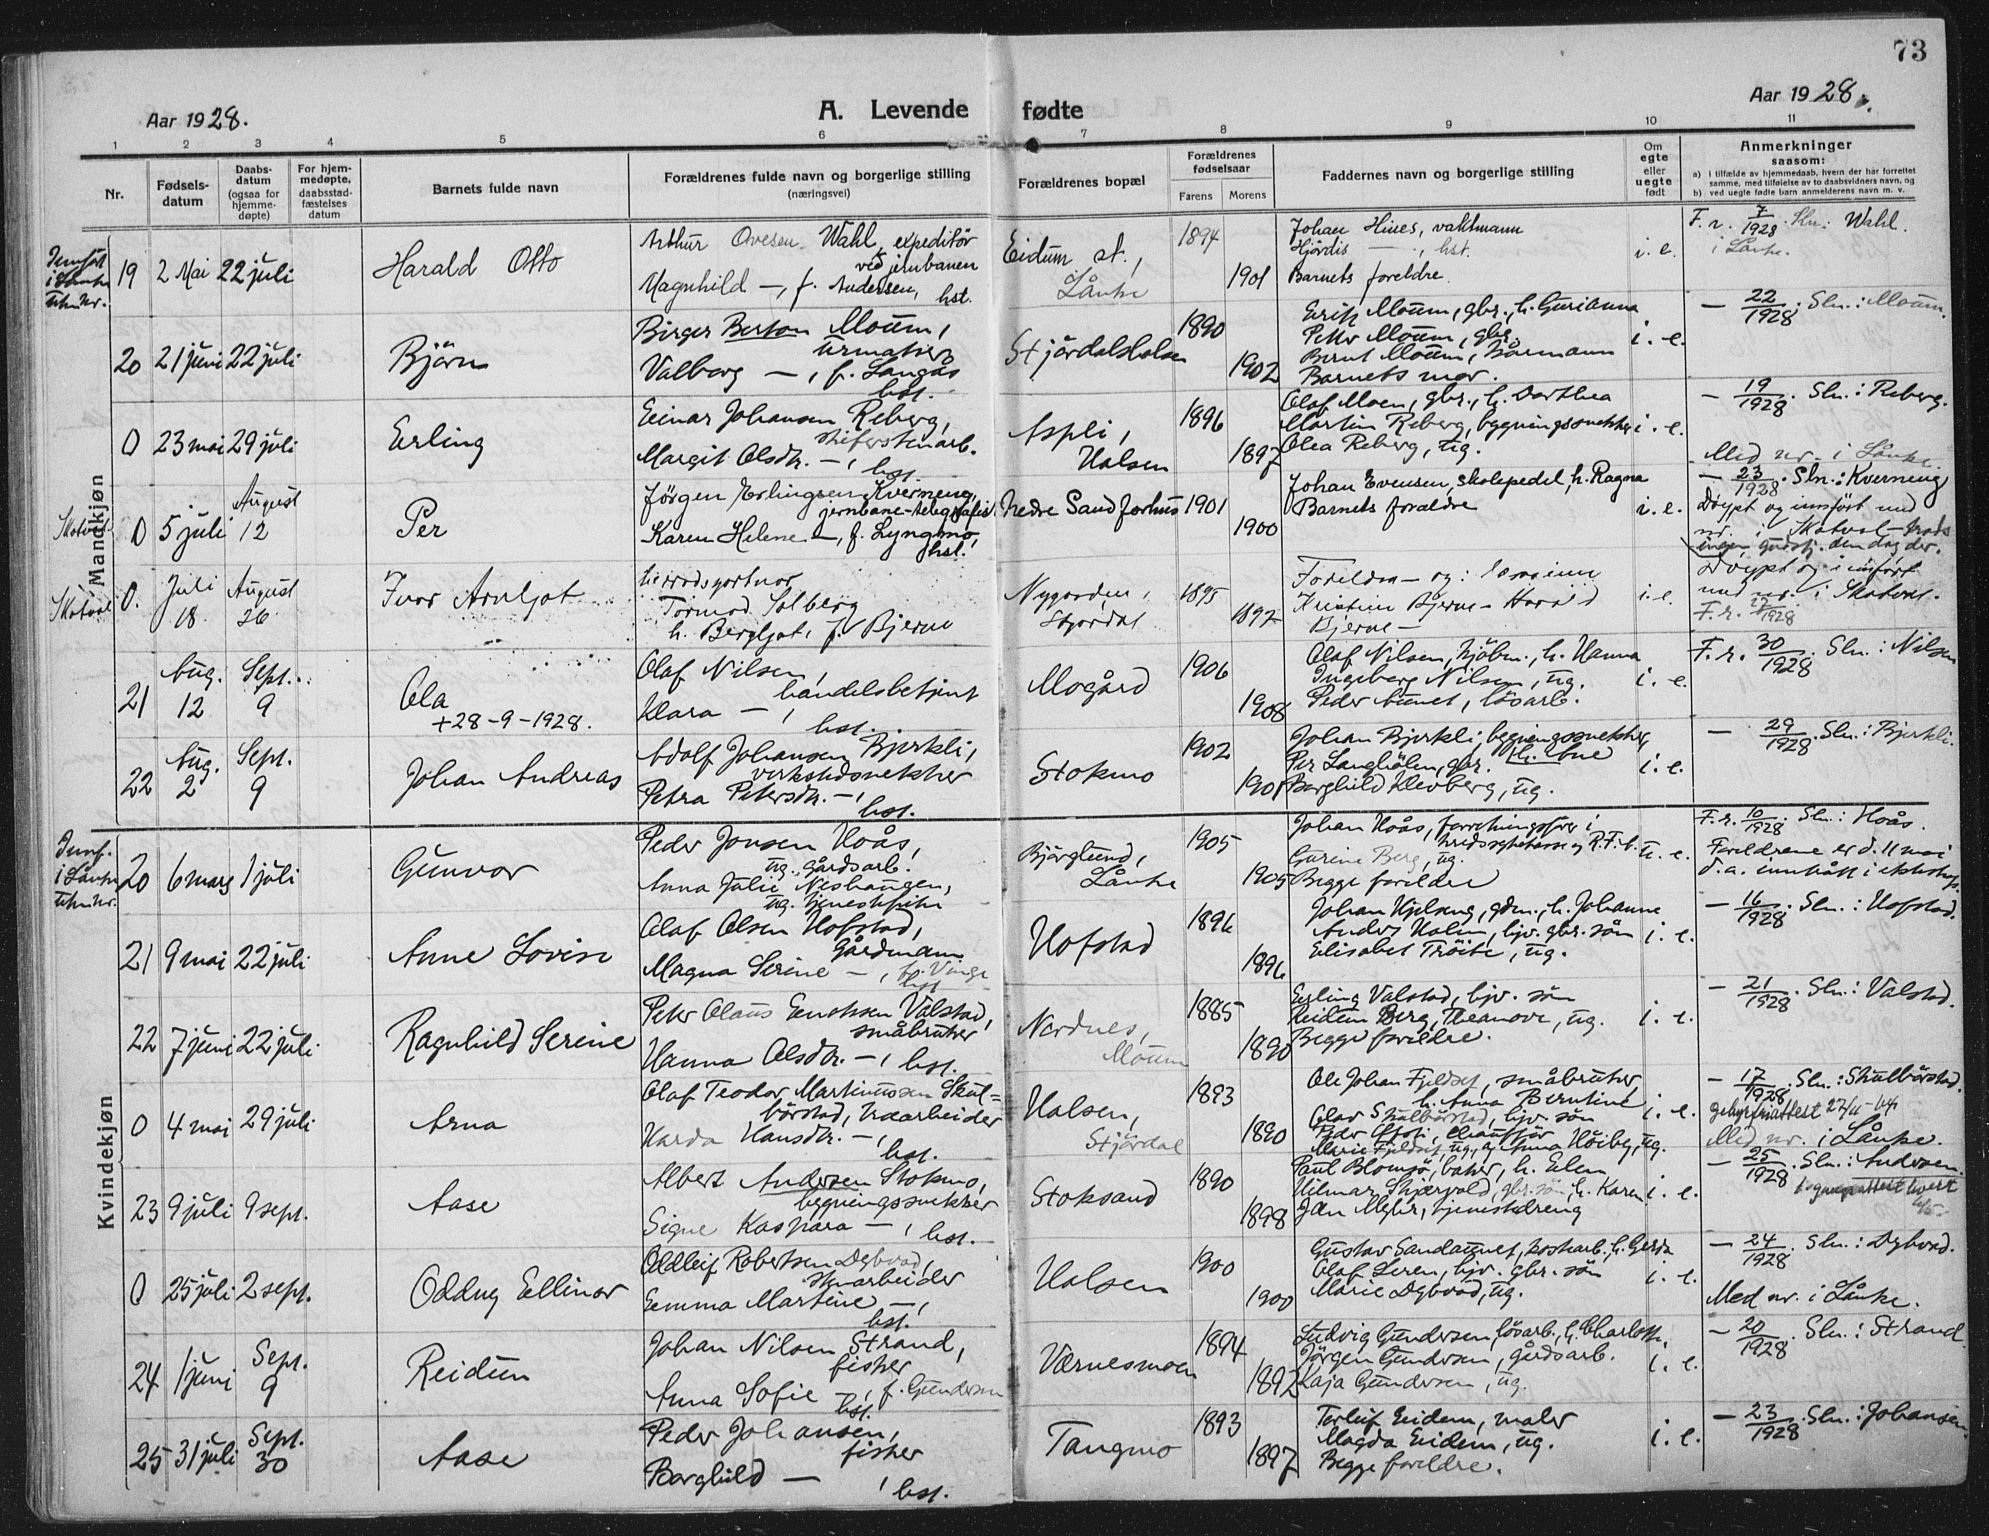 73
Aar 1928.
A. Levende fødte
Aar 1928.
1 2 3 4 5 6 7 8 9 10 11
Nr.
Fødsels-
datum
Daabs-
datum
(ogsaa for
hjemme-
døpte)
For hjem-
medøpte,
daabsstad-
fæstelses
datum
Barnets fulde navn
Forældrenes fulde navn og borgerlige stilling
(næringsvei)
Forældrenes bopæl
Forældrenes
fødselsaar
Farens Morens
Faddernes navn og borgerlige stilling
Om
egte
eller
uegte
født
Anmerkninger
saasom:
a) i tilfælde av hjemmedaab, hvem der har forrettet
samme, med tilføielse av to daabsvidners navn, og
b) ved uegte fødte barn anmelderens navn m. v.
Mandkjøn
i Lånke
19 2 Mai 22 juli
Harald Otto
Arthur Ovesen Wahl, expeditør
ved jernbanen
Magnhild —, f. Andersen, hst.
Eidum st.,
Lånke
1894
1901
Johan Hines, vaktmann
Hjördis — , hst.
Barnets foreldre.
i. e.
F. r. 7/1928 Sln: Wahl.
i Lånke.
20 21 juni 22 juli
Björn
Birger Berton Moum,
urmaker
Valborg —, f. Langås
hst.
Stjördalshalsen
1890
1902
Erik Moum, gbr., h. Gurianna
Petter Moum, gbr.
Bernt Moum,
Barnets mor.
i. e.
— 22/1928. Sln.: Moum.
0 23 mai 29 juli
Erling
Einar Johansen Reberg,
skiferstenarb.
Margit Olsdtr. —, hst.
Aspli,
Halsen
1896
1897
Olaf Moen, gbr., h. Dorthea
Martin Reberg, bygningssnekker
Olea Reberg, ug.
i. e.
— 19/1928. Sln.: Reberg.
Med nr. i Lånke.
Skatval
0 5 juli August 12
Per
Jørgen Erlingsen Kverneng,
jernbane-telegrafist
Karen Helene —, f. Lyngmo,
hst.
Nedre Sandferhus
1901
1900
Johan Evensen, skolepedel, h. Ragna
Barnets forældre
i. e.
— 23/1928. Sln.: Kverneng
Døypt og innført med
nr. i Skatval —
ingen gudstj. den dag der.
Skatval
0. Juli 18. August 26
Ivar Arnljot
herradsgartnar
Tormod Solberg
h. Bergljot, f. Bjerve
Nygarden,
Stjørdal
1895
1897
Foreldra — og:
Kristine Bjerve — Harald
Bjerve —
i. e.
Døypt og innført
med nr. i Skatval.
F. r. 28/1928
21 Aug. 12 Sept. 9
Ola
+ 28-9-1928.
Olaf Nilsen,
handelsbetjent
Klara —,
hst.
Mogård
1906
1908
Olaf Nilsen, kjöbm., h. Hanna
Ingeborg Nilsen, ug.
Peder Aunet, løsarb.
i. e.
F. r. 30/1928 Sln.: Nilsen
22 Aug. 2 Sept. 9
Johan Andreas
Adolf Johansen Bjerkli,
verkstedsnekker
Petra Petersdtr. —,
hst.
Stokmo
1902
1901
Johan Bjerkli, bygningssnekker,
Per Langhólen, gbr.
Borghild Klevberg, ug.
i. e.
— 29/1928. Sln.: Bjerkli.
Kvindekjøn
Innf.
i Lånke
20 6 mars 1 juli
Gunvor
Peder Jonsen Hoås,
ug. gårdsarb.
Anna Julie Neshaugen,
ug. tjenestepike
Björglund,
Lånke
1905
1905
Johan Hoås,
Gurine Berg, ug.
Begge foreldre
u. e.
F. r. 10/1928. Sln: Hoås.
Foreldrene er d. 11 mai
d. a. inntrått i ekteskap.
21 9 mai 22 juli
Anne Lovise
Olaf Olsen Hofstad,
Gårdmann
Magna Serine —, f. Vinge
hst.
Hofstad
1896
1896
Johan Hjelseng, gdm., h. Johanne
Anders Holm, hjv. gbr. søn
Elisabet Tröite, ug.
i. e.
— 16/1928. Sln.: Hofstad.
22 7 juni 22 juli
Ragnhild Serine
Peter Olaus Enoksen Valstad,
småbruker
Hanna Olsdtr. —, hst.
Nordnes,
Moum
1885
1890
Erling Valstad, hjv. søn
Reidun Berg, Theanove, ug.
Begge foreldre.
i. e.
— 21/1928. Sln.: Valstad.
0 4 mai 29 juli
Arna
Olaf Teodor Martinussen Skul=
börstad, veiarbeider
Harda Hansdtr. —,
hst.
Halsen,
Stjördal
1893
1890
Ole Johan Fjeldset, småbruker,
h. Anna Berntine
Olav Skulbörstad, hjv. søn
Marie Fjeldset, ug., og Anna Höiby, ug.
i. e.
— 17/1928. Sln.: Skulbörstad.
Med nr. i Lånke.
23 9 juli 9 sept.
Aase
Albert Andersen Stokmo,
bygningssnekker
Signe Kaspara —, hst.
Stoksand
1890
1898
Paul Blomsö, baker, h. Elen
Hilmar Skjervold, gbr. søn, h. Karen
i. e.
— 25/1928. Sln.: Andersen.
0 25 juli 2 sept.
Oddny Ellinor
Oddleif Robertsen Dybvad,
stenarbeider
Emma Martine —,
hst.
Halsen
1900
1900
Gustav Sandaunet, postarb., h. Gerda
Olaf Leren, hjv. gbr. søn
Marie Dybvad, ug.
i. e.
— 24/1928 Sln.: Dybvad.
Med nr. i Lånke.
24 1 juni Sept. 9
Reidun
Johan Nilsen Strand,
fisker
Anna Sofie —, f. Gundersen
hst.
Værnesmoen
1894
1892
Ludvig Gundersen, løsarb., h. Charlotte,
Jörgen Gundersen, gårdsarb.
Kaja Gundersen, ug.
i. e.
— 20/1928 Sln.: Strand.
25 31 juli Sept. 30
Aase
Peder Johansen,
fisker
Borghild —
, hst.
Tangmo
1893
1897
Torleif Eidem, maler
Magda Eidem, ug.
Begge foreldre.
i. e.
— 23/1928. Sln.: Johansen